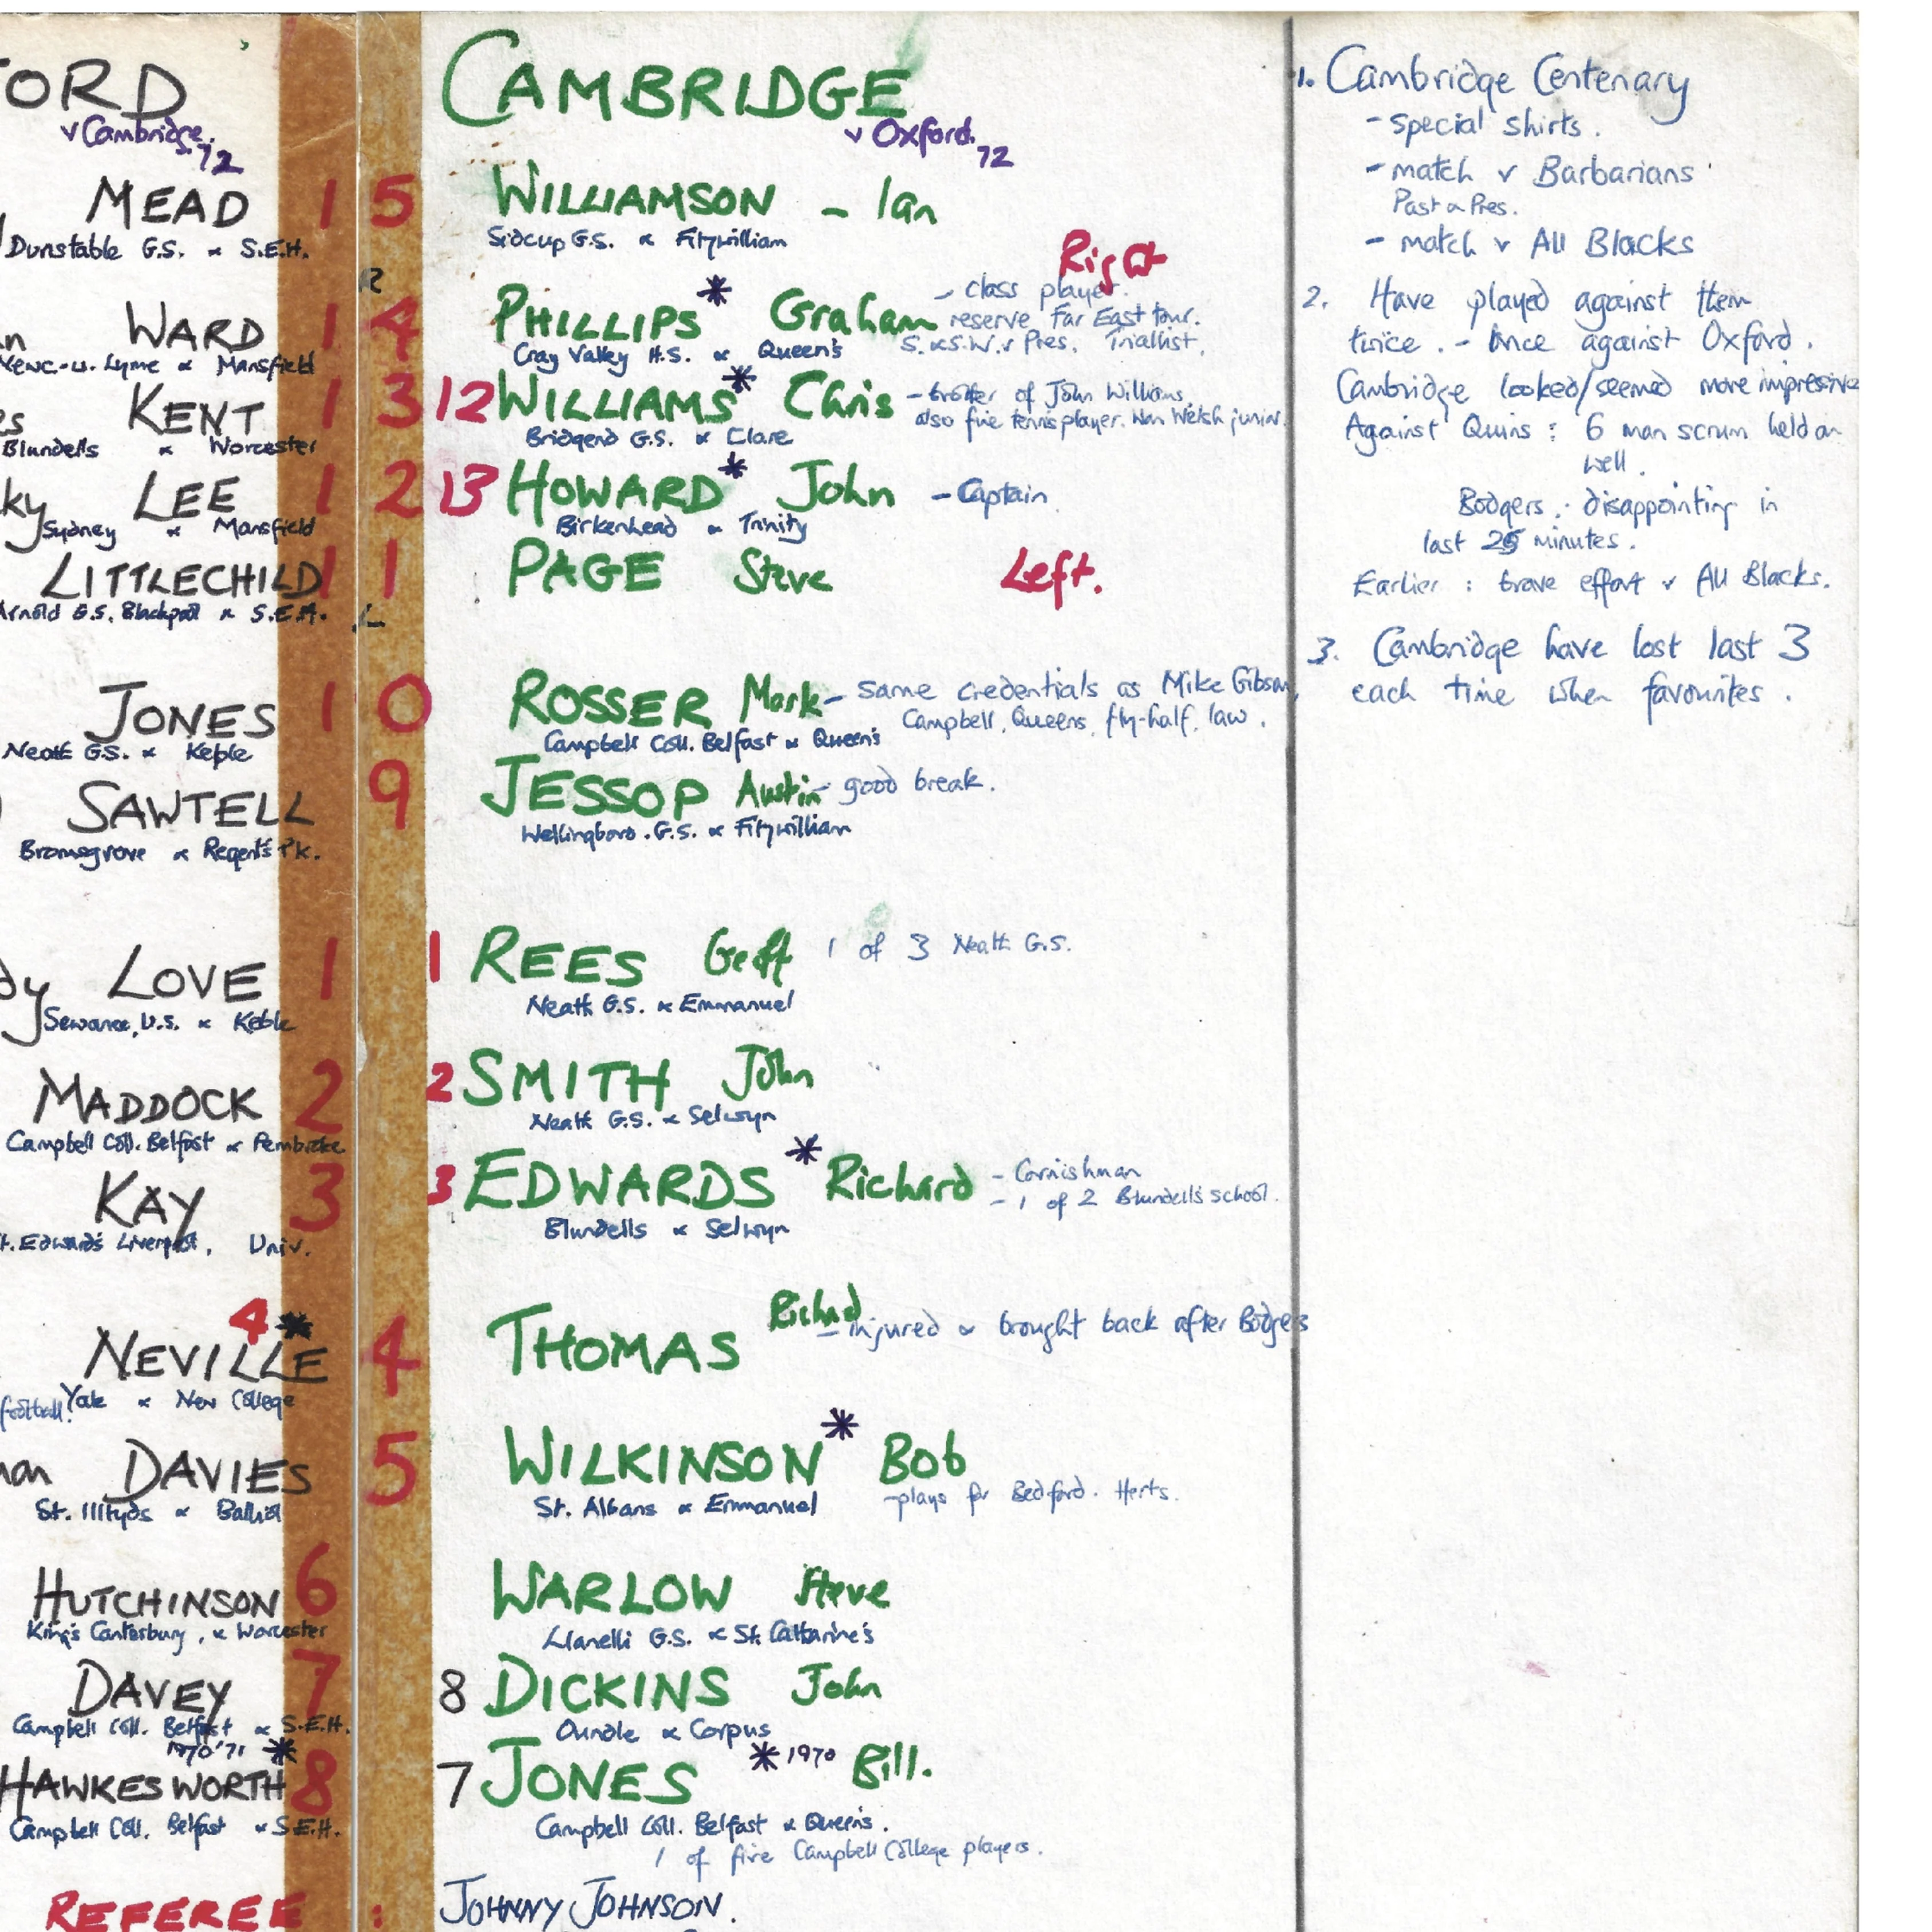 FORD
v Cambridge.
'72
MEAD 1
Dunstable G.S. & S.E.H.
WARD 1
Newc.-u. Lyme & Mansfield
KENT 1
Blundells & Worcester
LEE 1
Sydney & Mansfield
LITTLECHILD 1
Arnold G.S. Blackpool & S.E.H.
JONES 1
Neath G.S. & Keble
SAWTELL
Bromsgrove & Regent's Pk.
LOVE 1
Sewanee, U.S. & Keble
MADDOCK 2
Campbell Coll. Belfast & Pembroke
KAY 3
St. Edward's Liverpool, Univ.
4 *
NEVILLE
football. Yale & New College
DAVIES
St. Illtyds & Balliol
HUTCHINSON 6
King's Canterbury, & Worcester
DAVEY 7
Campbell Coll. Belfast & S.E.H.
1970 '71 *
HAWKESWORTH 8
Campbell Coll. Belfast & S.E.H.
REFEREE :
CAMBRIDGE
v Oxford.
72
5 WILLIAMSON - Ian
Sidcup G.S. & Fitzwilliam
R
Right
4 PHILLIPS * Graham - class player.
reserve Far East tour.
S. & S.W. v Pres. Triallist.
Cray Valley H.S. & Queen's
3 12 WILLIAMS * Chris - brother of John Williams.
also fine tennis player. Won Welsh junior.
Bridgend G.S. & Clare
2 13 HOWARD * John - Captain.
Birkenhead & Trinity
1 PAGE Steve Left.
L
0 ROSSER Mark - same credentials as Mike Gibson,
Campbell, Queens, fly-half, law.
Campbell Coll. Belfast & Queen's
9 JESSOP Austin - good break.
Wellingboro. G.S. & Fitzwilliam
1 REES Geoff 1 of 3 Neath G.S.
Neath G.S. & Emmanuel
2 SMITH John
Neath G.S. & Selwyn
3 EDWARDS * Richard - Cornishman
- 1 of 2 Blundell's school.
Blundells & Selwyn
4 THOMAS Richard - injured & brought back after Bodgers
5 WILKINSON * Bob
- plays for Bedford. Herts.
St. Albans & Emmanuel
WARLOW Steve
Llanelli G.S. & St. Catharine's
8 DICKINS John
Oundle & Corpus
7 JONES * 1970 Bill.
Campbell Coll. Belfast & Queen's.
1 of five Campbell College players.
JOHNNY JOHNSON.
1. Cambridge Centenary
- special shirts.
- match v Barbarians
Past & Pres.
- match v All Blacks
2. Have played against them
twice. - Once against Oxford.
Cambridge looked/seemed more impressive
Against Quins : 6 man scrum held on
well.
Bodgers : disappointing in
last 25 minutes.
Earlier : brave effort v All Blacks.
3. Cambridge have lost last 3
each time when favourites.